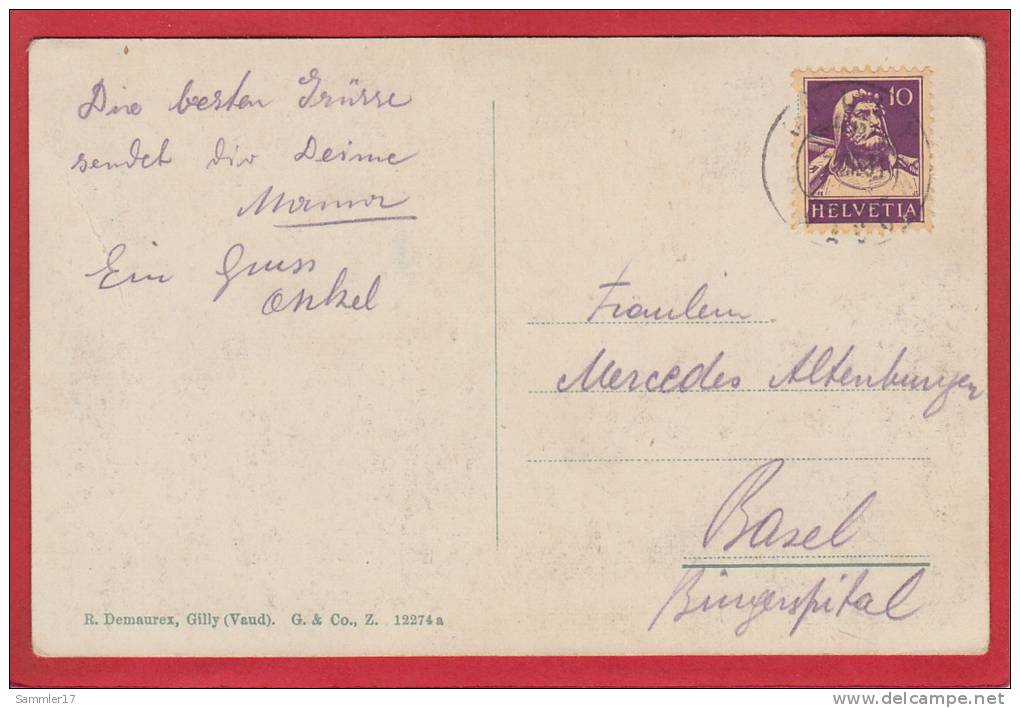 Die besten Grüsse
sendet dir Deine
Mama
Ein Gruss
Onkel
10
HELVETIA
Fräulein
Mercedes Altenburger
Basel
Bürgerspital
R. Demaurex, Gilly (Vaud). G. & Co., Z. 12274 a
Sammler17
www.delcampe.net